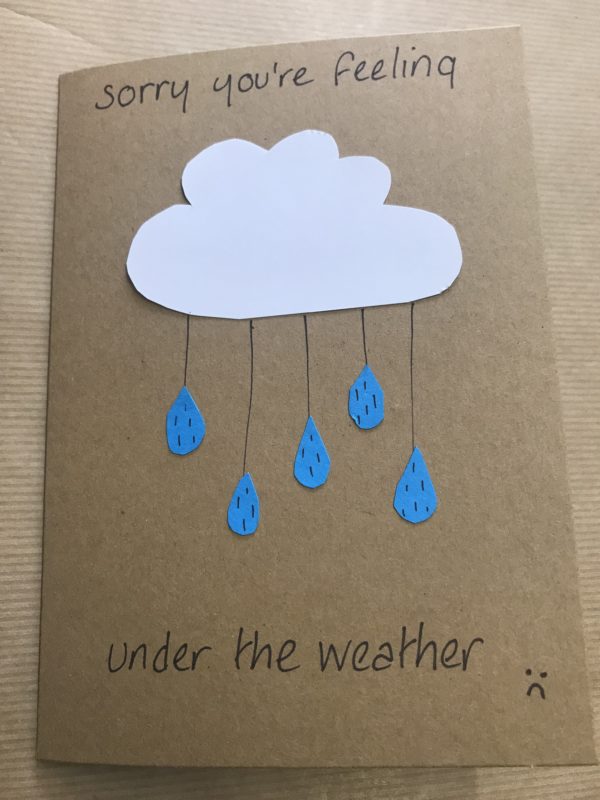 sorry you're feeling
under the weather